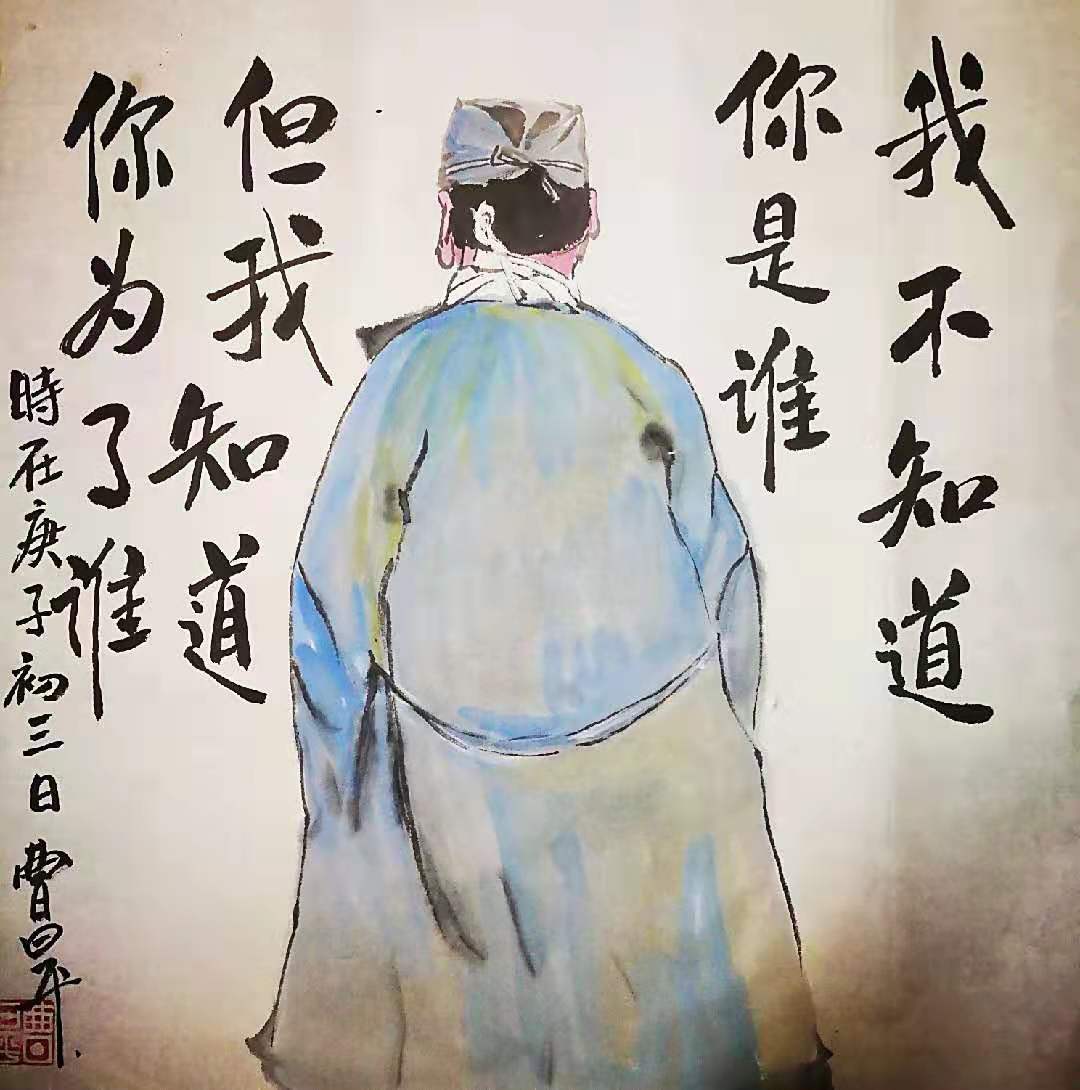 我不知道
你是谁
但我知道
你为了谁
時在庚子初三日曹